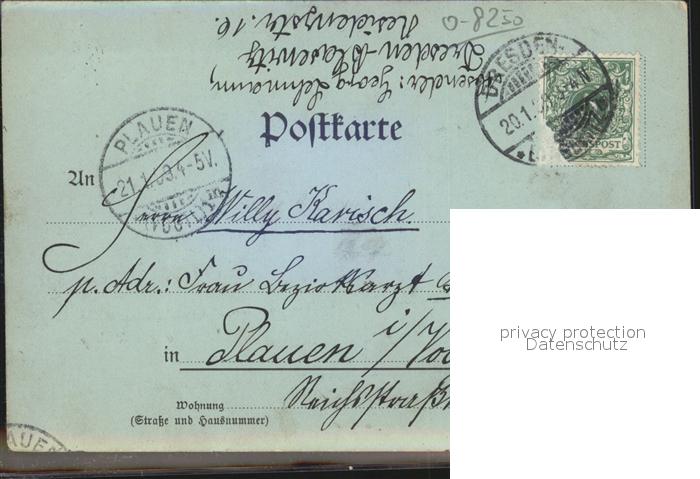 o-8250
Absender: Georg Lehmann,
Dresden-Blasewitz
Residenzstr. 16.
DRESDEN-
20.1.
Postkarte
PLAUEN
21.1. 4-5V.
(VOGTL)
An
Herrn Willy Karisch.
p. Adr.: Frau Bezirksarzt
in Plauen i/Vo
Reichsstraß
Wohnung
(Straße und Hausnummer)
privacy protection
Datenschutz